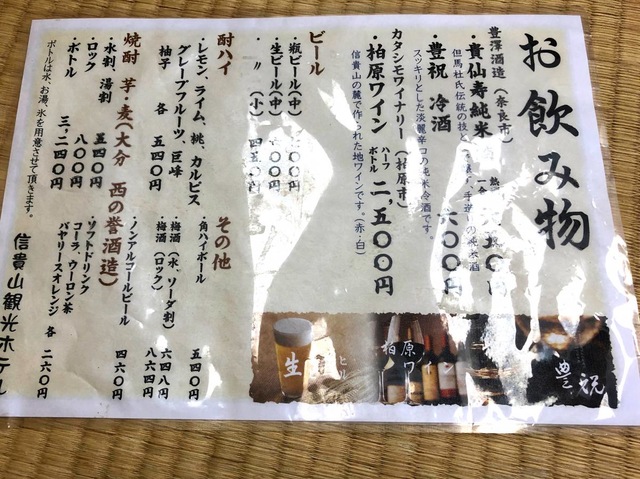 お飲み物
豊澤酒造（奈良市）
・貴仙寿純米
但馬杜氏伝統の技と
の純米酒
・豊祝 冷酒 六〇〇円
スッキリとした淡麗辛口の純米冷酒です。
カタシモワイナリー（柏原市）
・柏原ワイン ハーフボトル 二、五〇〇円
信貴山の麓で作られた地ワインです。（赤・白）
ビール
・瓶ビール（中） 〇〇円
・生ビール（中） 六〇〇円
・〃（小） 四五〇円
酎ハイ
・レモン、ライム、桃、カルピス
グレープフルーツ、巨峰
柚子 各 五四〇円
焼酎 芋・麦（大分 西の誉酒造）
・水割、湯割 五四〇円
・ロック 八〇〇円
・ボトル 三、二四〇円
ボトルは水、お湯、氷を用意させて頂きます。
その他
・角ハイボール 五四〇円
・梅酒（水、ソーダ割） 六四八円
・梅酒（ロック） 八六四円
・ノンアルコールビール 四六〇円
・ソフトドリンク
コーラ、ウーロン茶
バヤリースオレンジ 各 二六〇円
信貴山観光ホテル
生
柏原ワイン
豊祝